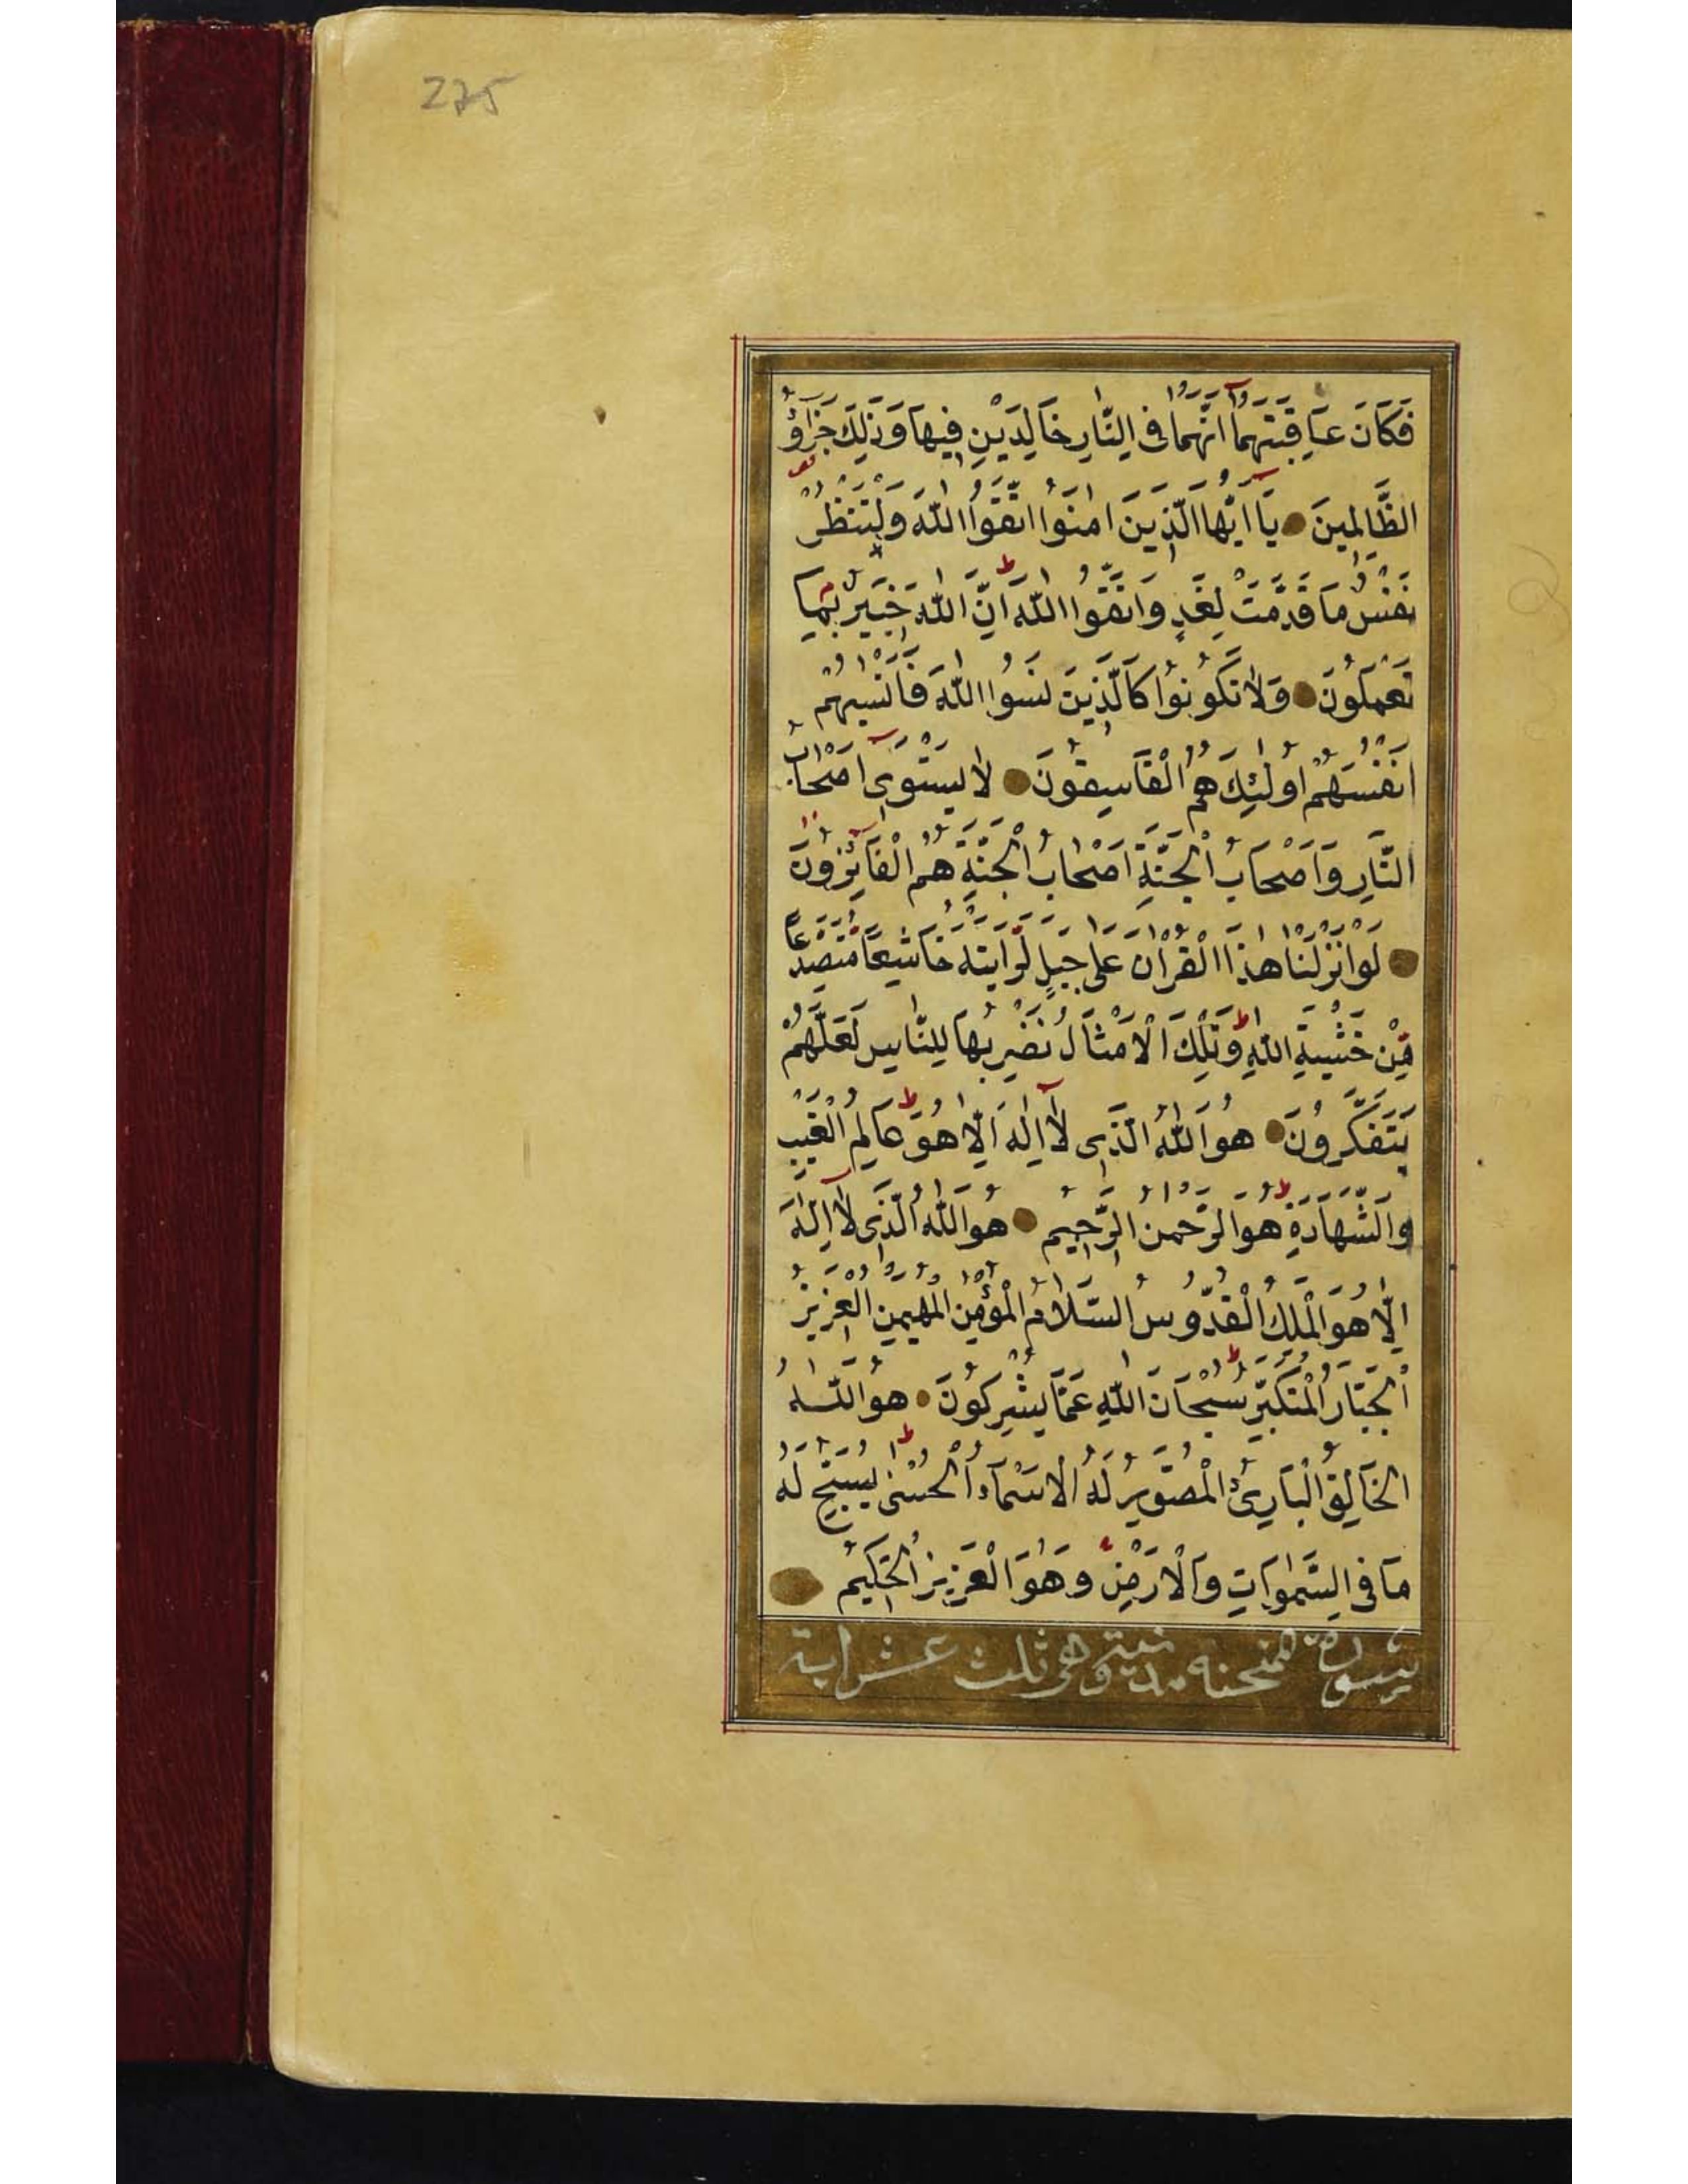 275
فَكَانَ عَاقِبَتَهُمَا اَنَّهُمَا فِى النَّارِ خَالِدَيْنِ فِيهَا وَذٰلِكَ جَزَاؤُ
الظَّالِمِينَ يَا اَيُّهَا الَّذِينَ اٰمَنُوا اتَّقُوا اللّٰهَ وَلْتَنْظُرْ
نَفْسٌ مَا قَدَّمَتْ لِغَدٍ وَاتَّقُوا اللّٰهَ اِنَّ اللّٰهَ خَبِيرٌ بِمَا
تَعْمَلُونَ وَلَا تَكُونُوا كَالَّذِينَ نَسُوا اللّٰهَ فَاَنْسٰيهُمْ
اَنْفُسَهُمْ اُولٰئِكَ هُمُ الْفَاسِقُونَ لَا يَسْتَوِى اَصْحَابُ
النَّارِ وَاَصْحَابُ الْجَنَّةِ اَصْحَابُ الْجَنَّةِ هُمُ الْفَائِزُونَ
لَوْ اَنْزَلْنَا هٰذَا الْقُرْاٰنَ عَلٰى جَبَلٍ لَرَاَيْتَهُ خَاشِعًا مُتَصَدِّعًا
مِنْ خَشْيَةِ اللّٰهِ وَتِلْكَ الْاَمْثَالُ نَضْرِبُهَا لِلنَّاسِ لَعَلَّهُمْ
يَتَفَكَّرُونَ هُوَ اللّٰهُ الَّذِى لَا اِلٰهَ اِلَّا هُوَ عَالِمُ الْغَيْبِ
وَالشَّهَادَةِ هُوَ الرَّحْمٰنُ الرَّحِيمُ هُوَ اللّٰهُ الَّذِى لَا اِلٰهَ
اِلَّا هُوَ الْمَلِكُ الْقُدُّوسُ السَّلَامُ الْمُؤْمِنُ الْمُهَيْمِنُ الْعَزِيزُ
الْجَبَّارُ الْمُتَكَبِّرُ سُبْحَانَ اللّٰهِ عَمَّا يُشْرِكُونَ هُوَ اللّٰهُ
الْخَالِقُ الْبَارِئُ الْمُصَوِّرُ لَهُ الْاَسْمَاءُ الْحُسْنٰى يُسَبِّحُ لَهُ
مَا فِى السَّمٰوَاتِ وَالْاَرْضِ وَهُوَ الْعَزِيزُ الْحَكِيمُ
سورة الممتحنه مدنية وهى ثلث عشر اية